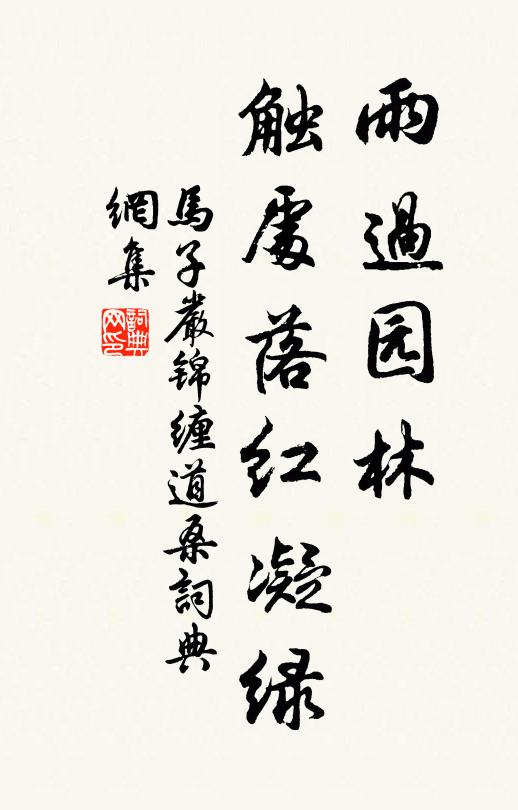 雨過园林
触處落红凝绿
馬子嚴錦纏道桑詞典
網集
詞典
网印